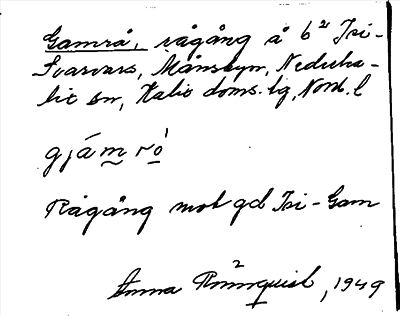 Gamrå, rågång å b² Isi-
Svarvars, Månsbyn, Nederka-
lix sn, Kalix doms.lg, Nord. l
gjámró
Rågång mot gd Isi-Gam
Anna Rönnquist, 1949